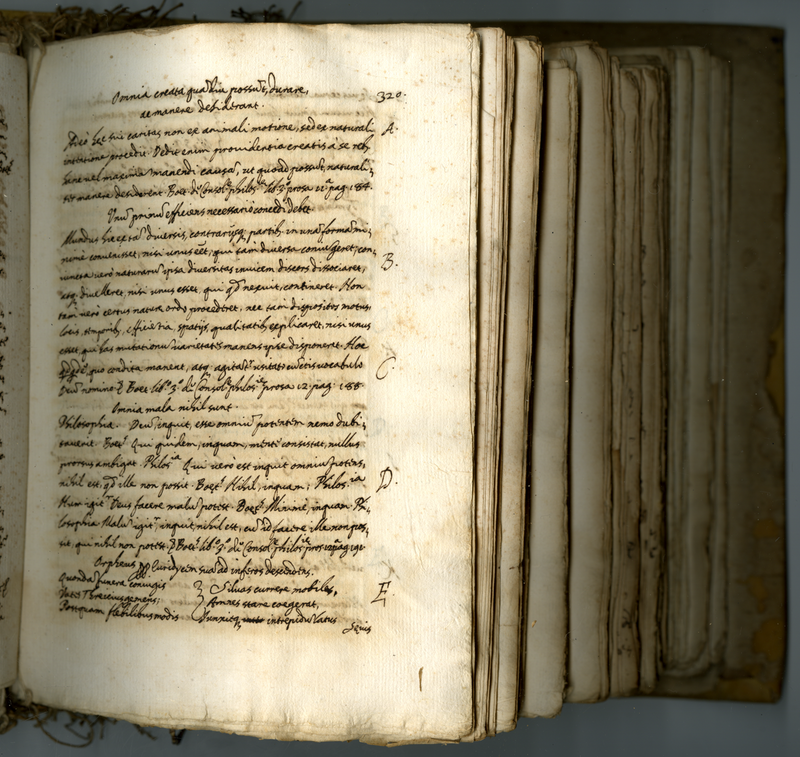 320.
Omnia creata quādiu possūt, durare,
ac manere desiderant.
A.
Adeò hęc sui caritas non ex animali motione, sed ex naturali
intẽtione procedit. Dedit enim providentia creatis à se reb,
hanc vel maximā manendi causā, ut quoad possūt, naturali-
ter manere desiderent. Boet. d. Consol. philos. lib. 3. prosa 11. pag. 184.
Unū primū efficiens necessariò concedi debet.
Mundus hic ex tā diversis, contrarijsq; partib, in unā formā mi-
nimè convenisset, nisi unus eēt, qui tam diversa coniungeret; con-
B.
iuncta verò naturarū ipsa diversitas invicem discors dissociaret,
atq; divelleret, nisi unus esset, qui qd nexuit, contineret. Non
tam verò certus naturæ ordo procederet, nec tam dispositos motus,
locis, temporib, efficiētia, spatijs, qualitatib, explicaret, nisi unus
esset, qui has mutationū varietates manens ipse disponeret. Hoc
quo condita manent, atq; agitātr usitato cūctis vocabulo
C.
Deū nomino. Boet. lib. 3. d. Consol. philos. prosa 12. pag. 188.
Omnia mala nihil sunt.
Philosophia. Deū, inquit, esse omniū potentem nemo dubi-
taverit. Boet. Qui quidem, inquam, mente consistat, nullus
prorsus ambigat. Philos.ia Qui verò est inquit omniū potens,
nihil est, qd ille non possit. Boet. Nihil, inquam; Philos.ia
D.
Num igitr Deus facere malū potest. Boet. Minimè, inquam. Phi-
losophia. Malū igitr, inquit, nihil est, cū id facere ille non pos-
sit, qui nihil non potest. Boet. lib. 3. d. Consol. philos. pros. 12. pag. 191
Orpheus Euridycem suā ad inferos descendens.
Quondā funera coniugis
Vates Threicius gemens;
Postquam flebilibus modis
E.
Siluas currere mobiles,
Amnes stare coegerat,
Iunxitq; intrepidū latus
Sęuis